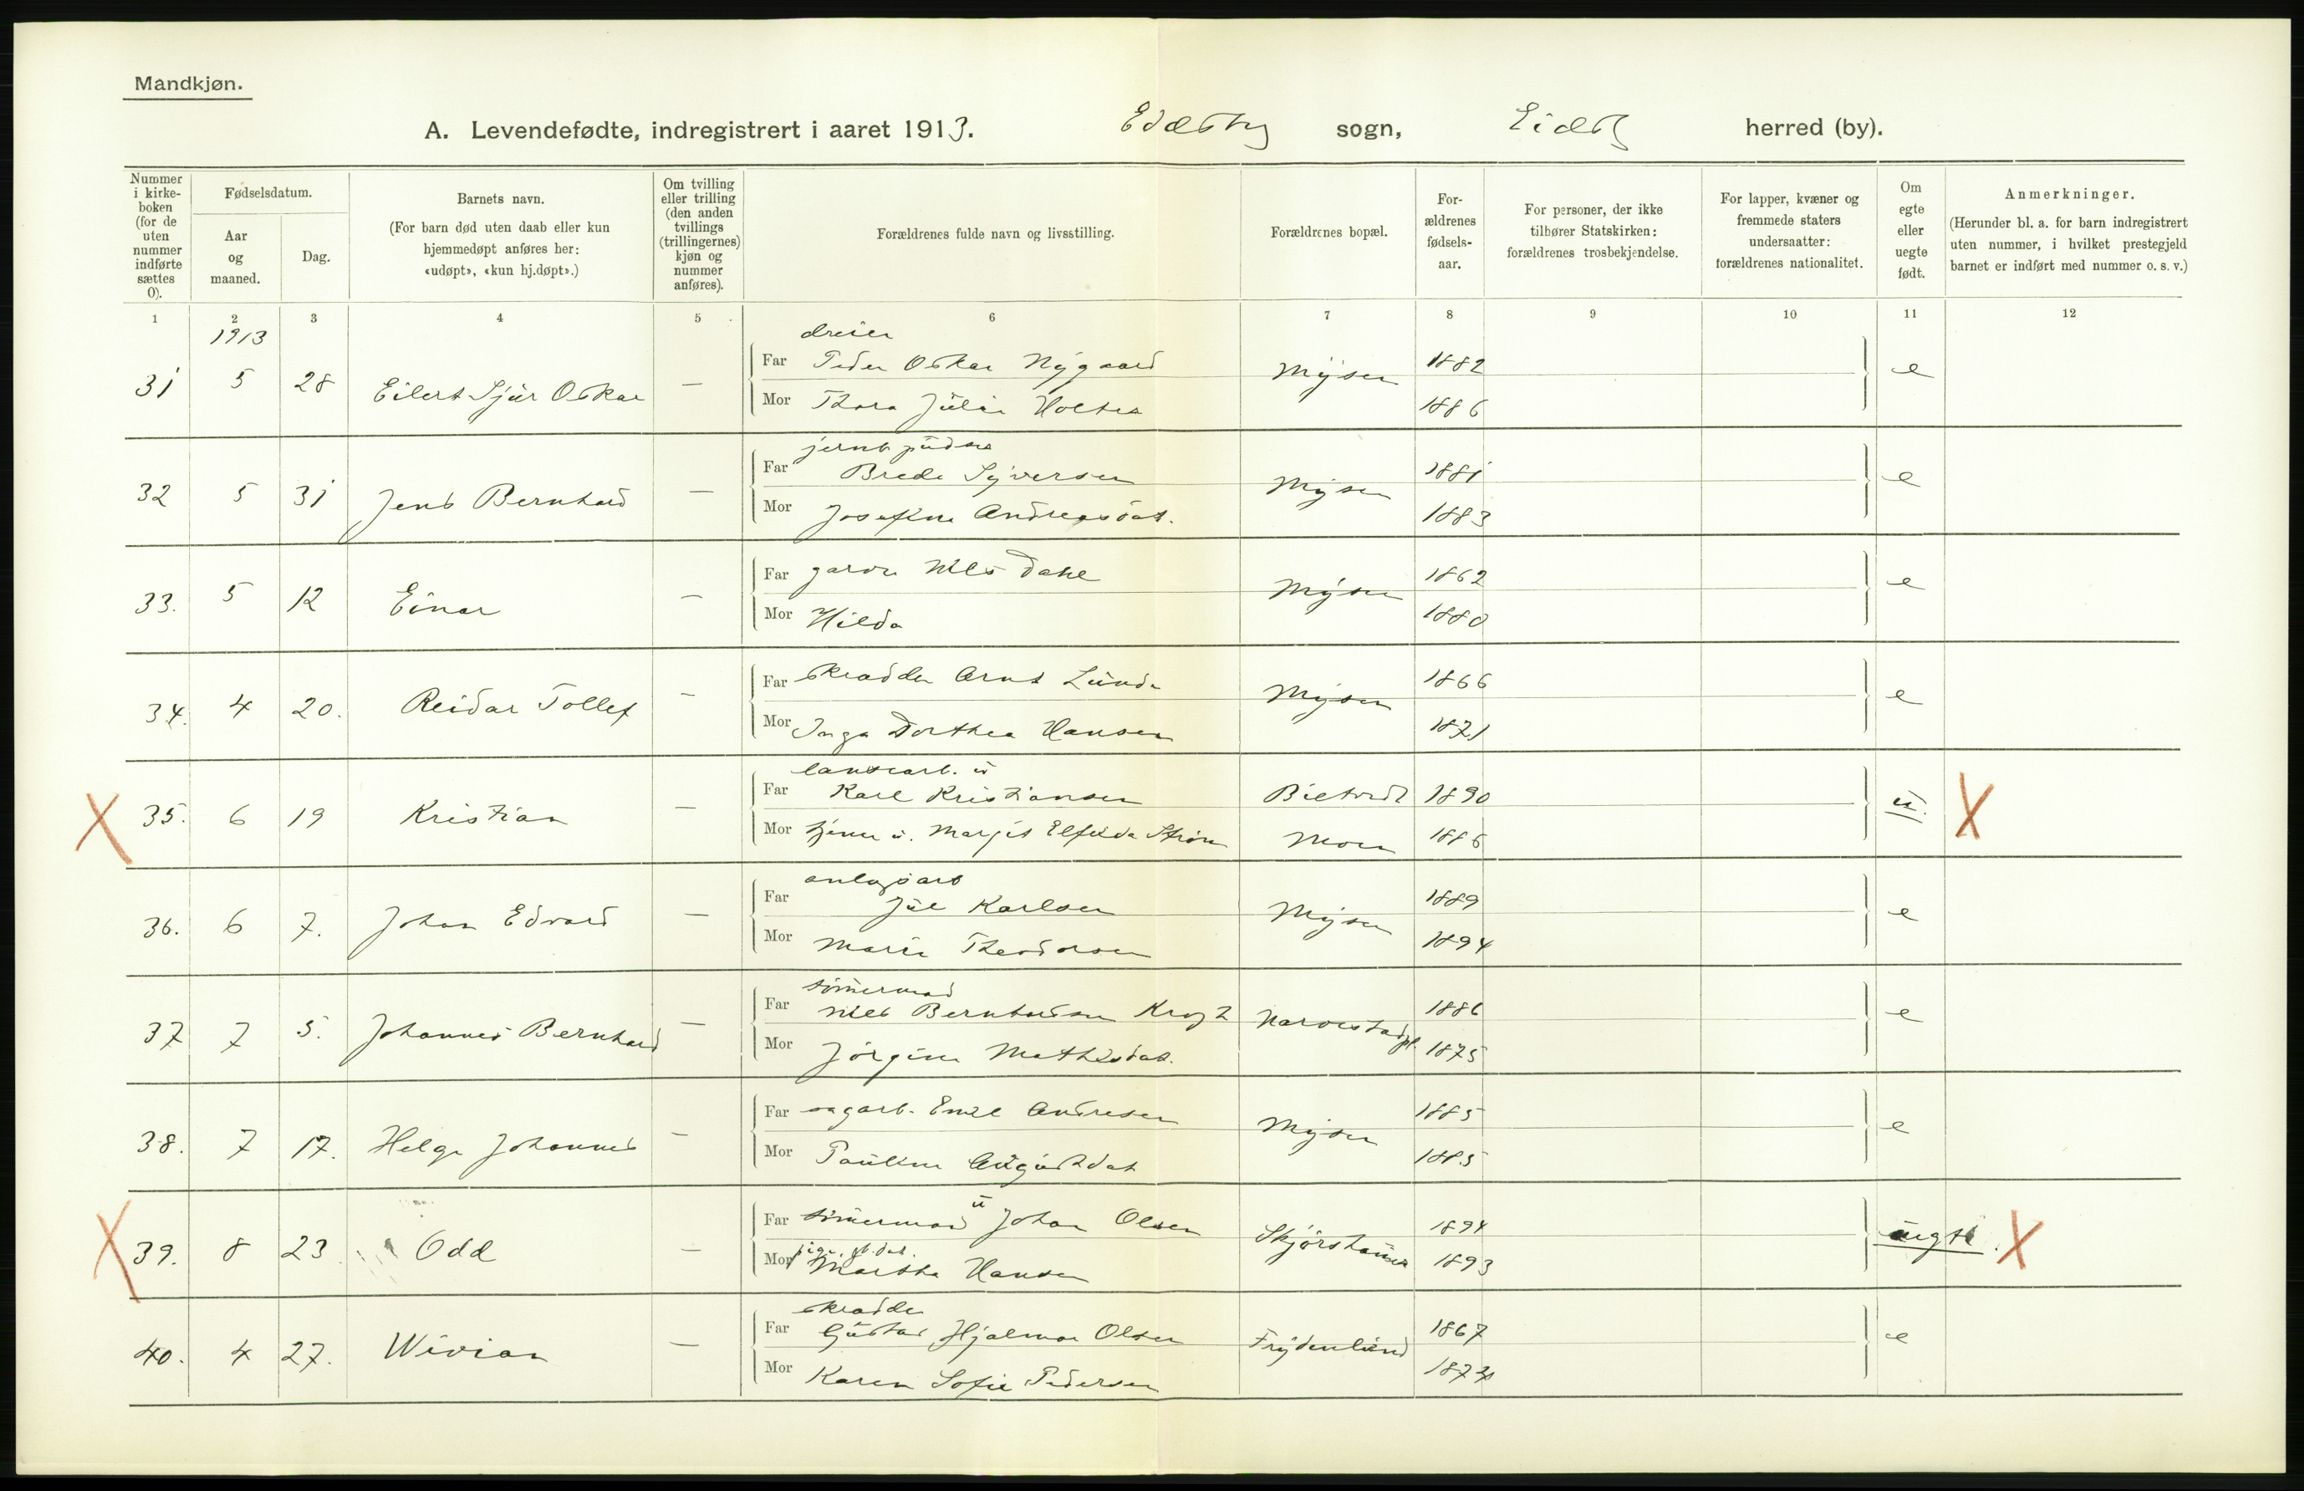 Mandkjøn.
A. Levendefødte, indregistrert i aaret 1913. Eidsberg sogn, Eidsb herred (by).
Nummer i kirke-boken (for de uten nummer indførte sættes 0).
Fødselsdatum.
Aar og maaned.
Dag.
Barnets navn.
(For barn død uten daab eller kun hjemmedøpt anføres her: «udøpt», «kun hj.døpt».)
Om tvilling eller trilling (den anden tvillings (trillingernes) kjøn og nummer anføres).
Forældrenes fulde navn og livsstilling.
Forældrenes bopæl.
For-ældrenes fødsels-aar.
For personer, der ikke tilhører Statskirken: forældrenes trosbekjendelse.
For lapper, kvæner og fremmede staters undersaatter: forældrenes nationalitet.
Om egte eller uegte født.
Anmerkninger.
(Herunder bl. a. for barn indregistrert uten nummer, i hvilket prestegjeld barnet er indført med nummer o. s. v.)
1 2 3 4 5 6 7 8 9 10 11 12
1913
dreier
31 5 28 Eilert Sjur Oskar — Far Peder Oskar Nygaard Mysen 1882 e
Mor Thora Julie Holter 1886
jernb. pudser
32 5 31 Jens Bernhard — Far Brede Syversen Mysen 1881 e
Mor Josefine Andreasdat. 1883
33. 5 12 Einar — Far garver Nils Dahl Mysen 1862 e
Mor Hilda 1880
34. 4 20. Reidar Tollef — Far skrædder Arnt Lunde Mysen 1866 e
Mor Inga Dorthea Hansen 1871
landarb. u
X 35. 6 19 Kristian — Far Karl Kristiansen 1890 u. X
Mor tjener u. Margit Elfrida Strøm Moen 1886
anlægsarb
36. 6 7. Johan Edvard — Far Jul Karlsen Mysen 1889 e
Mor Marie Theodorsen 1894
tømmermand
37 7 5. Johannes Bernhard — Far Nils Bernhardsen Krogt Narvestadpl. 1886 e
Mor Jørgine Mathisdat. 1875
38. 7 17. Helge Johannes — Far sagarb. Emil Andresen Mysen 1885 e
Mor Pauline Augustdat 1885
X 39. 8 23 Odd — Far tømmermand u Johan Olsen Skjørshammer 1894 uegte. X
pige, gb.dat.
Mor Martha Hansen 1893
skrædder
40. 4 27. Wivian — Far Gustav Hjalmar Olsen Frydenlund 1867 e
Mor Karen Sofie Pedersen 1874